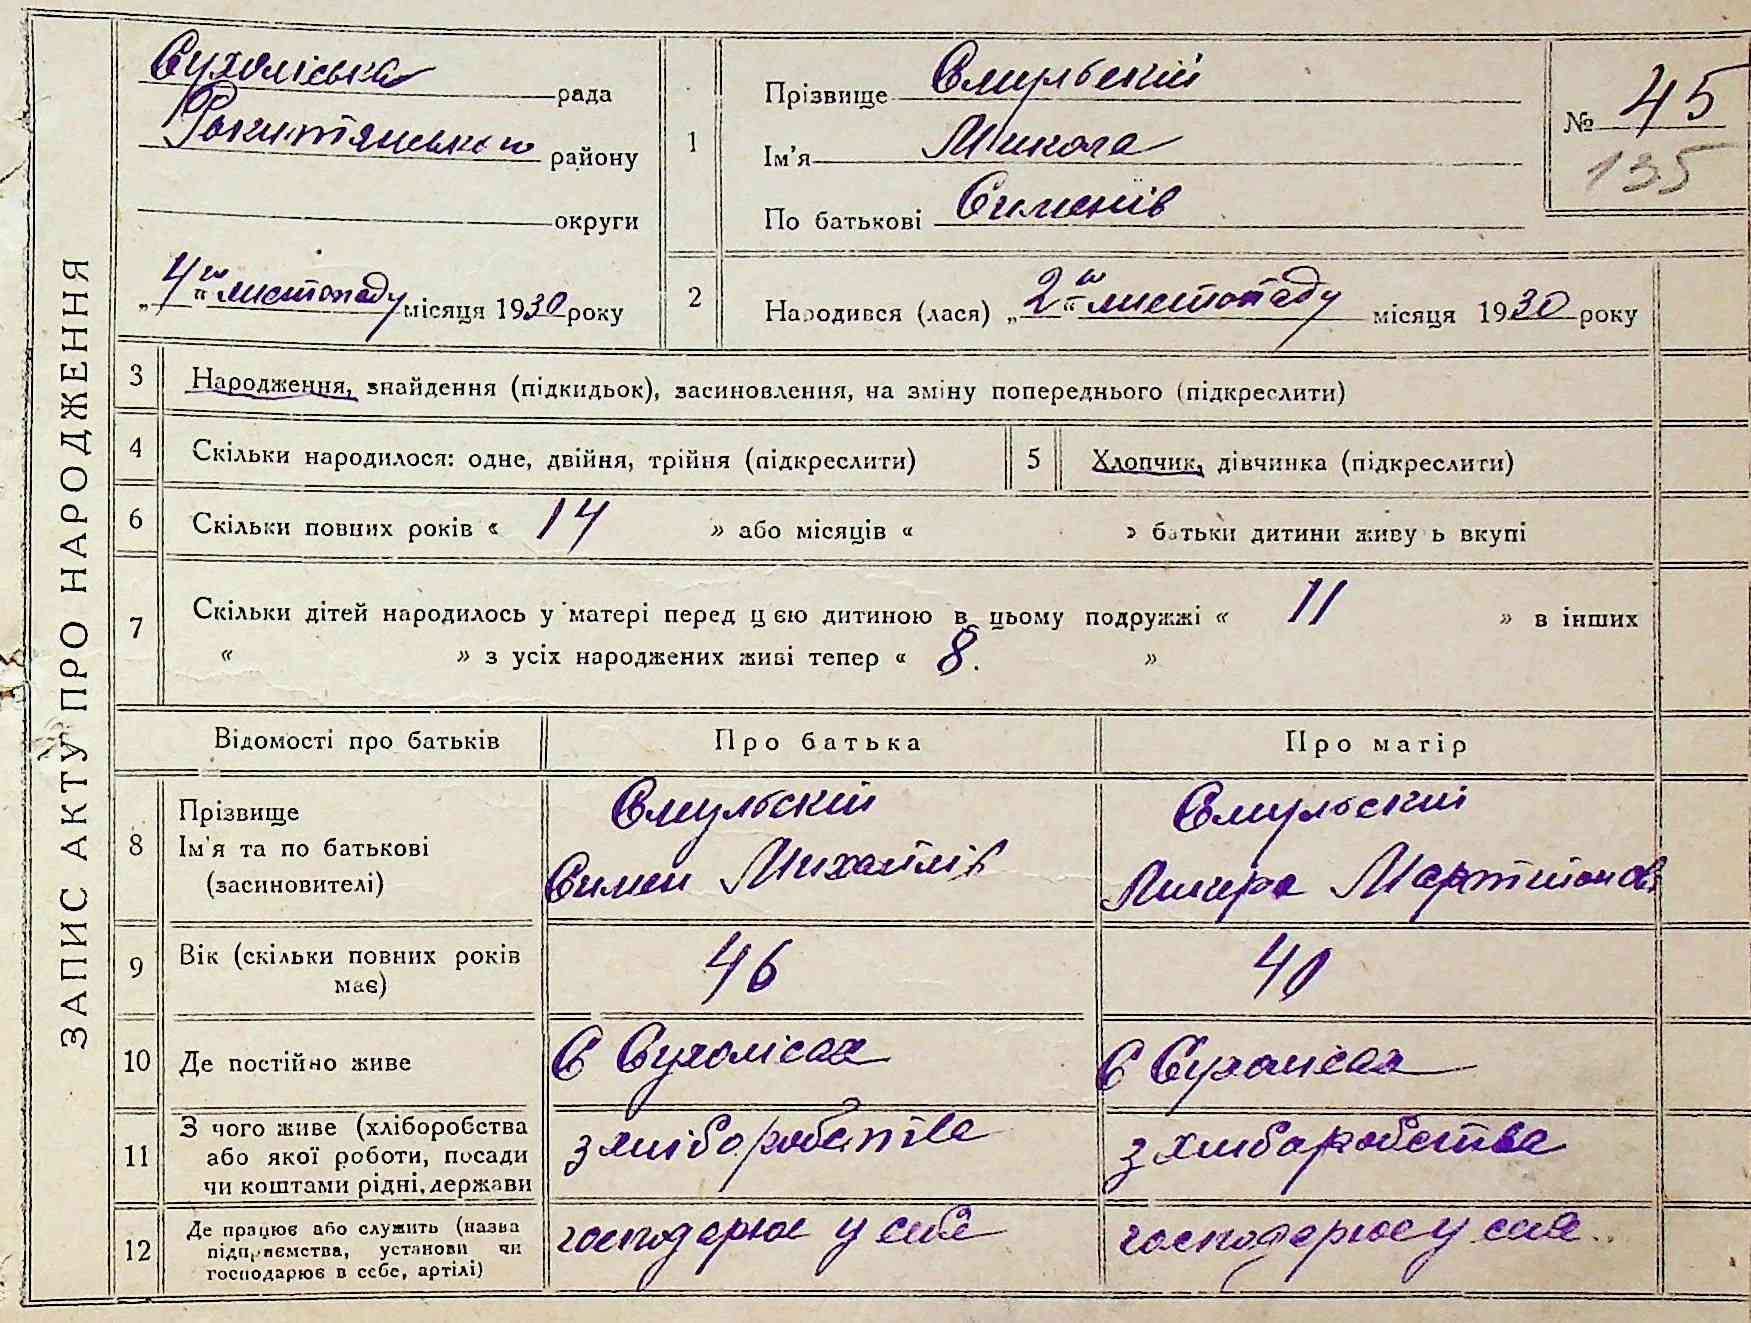 ЗАПИС АКТУ ПРО НАРОДЖЕННЯ
Сухоліська рада
Рокитянського району
округи
„4го“ листопаду місяця 1930 року
1
Прізвище Смульский
Ім'я Микола
По батькові Сименів
№ 45
135
2
Народився (лася) „2го“ листопаду місяця 1930 року
3 Народження, знайдення (підкидьок), засиновлення, на зміну попереднього (підкреслити)
4 Скільки народилося: одне, двійня, трійня (підкреслити)
5 Хлопчик, дівчинка (підкреслити)
6 Скільки повних років « 14 » або місяців « » батьки дитини живу ь вкупі
7 Скільки дітей народилось у матері перед цією дитиною в цьому подружжі « 11 » в інших
« » з усіх народжених живі тепер « 8. »
Відомості про батьків Про батька Про матір
8
Прізвище
Ім'я та по батькові
(засиновителі)
Смульский
Симен Михайлів
Смульский
Мартинова
9 Вік (скільки повних років
має)
46
40
10 Де постійно живе
С Сухолісах
С Сухолісах
11
З чого живе (хліборобства
або якої роботи, посади
чи коштами рідні, держави
з хліборобства
з хліборобства
12
Де працює або служить (назва
підприємства, установи чи
господарює в себе, артілі)
господарює у себе
господарює у себе